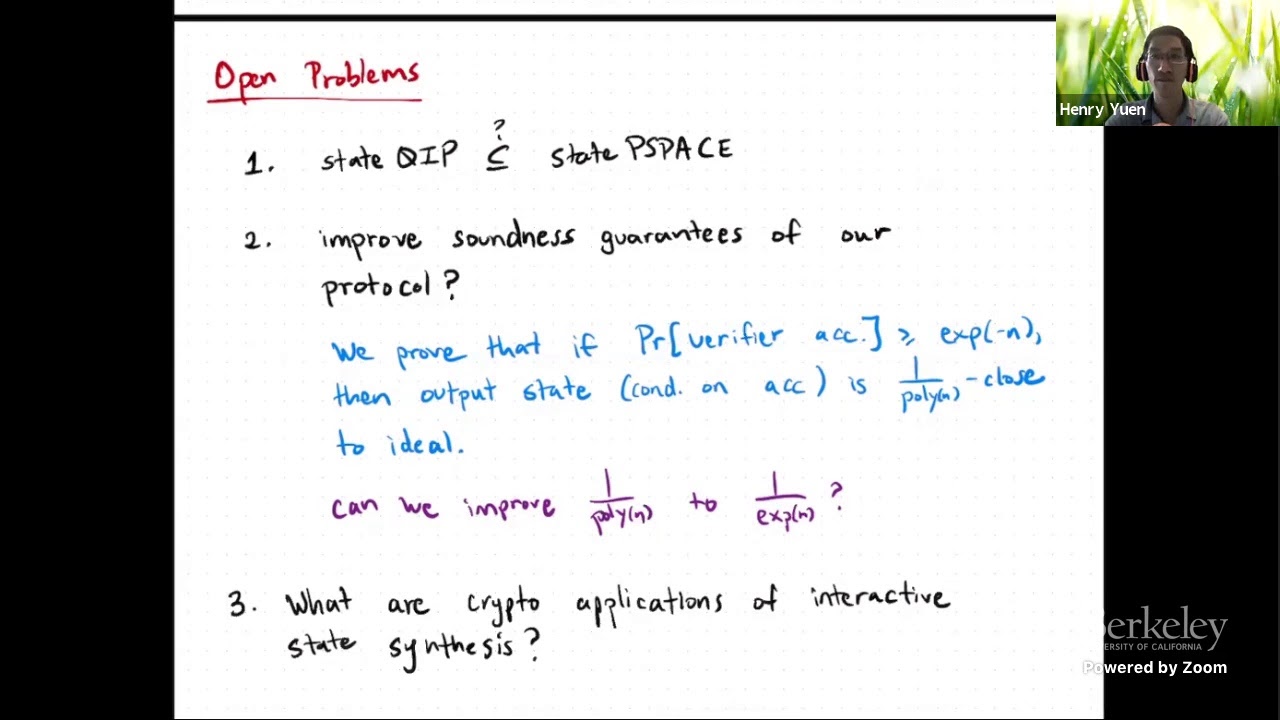 Open Problems
Henry Yuen
1. state QIP ⊆? state PSPACE
2. improve soundness guarantees of our
protocol?
We prove that if Pr[verifier acc.] ≥ exp(-n),
then output state (cond. on acc) is 1/poly(n) - close
to ideal.
can we improve 1/poly(n) to 1/exp(n)?
3. What are crypto applications of interactive
state synthesis?
Berkeley
UNIVERSITY OF CALIFORNIA
Powered by Zoom